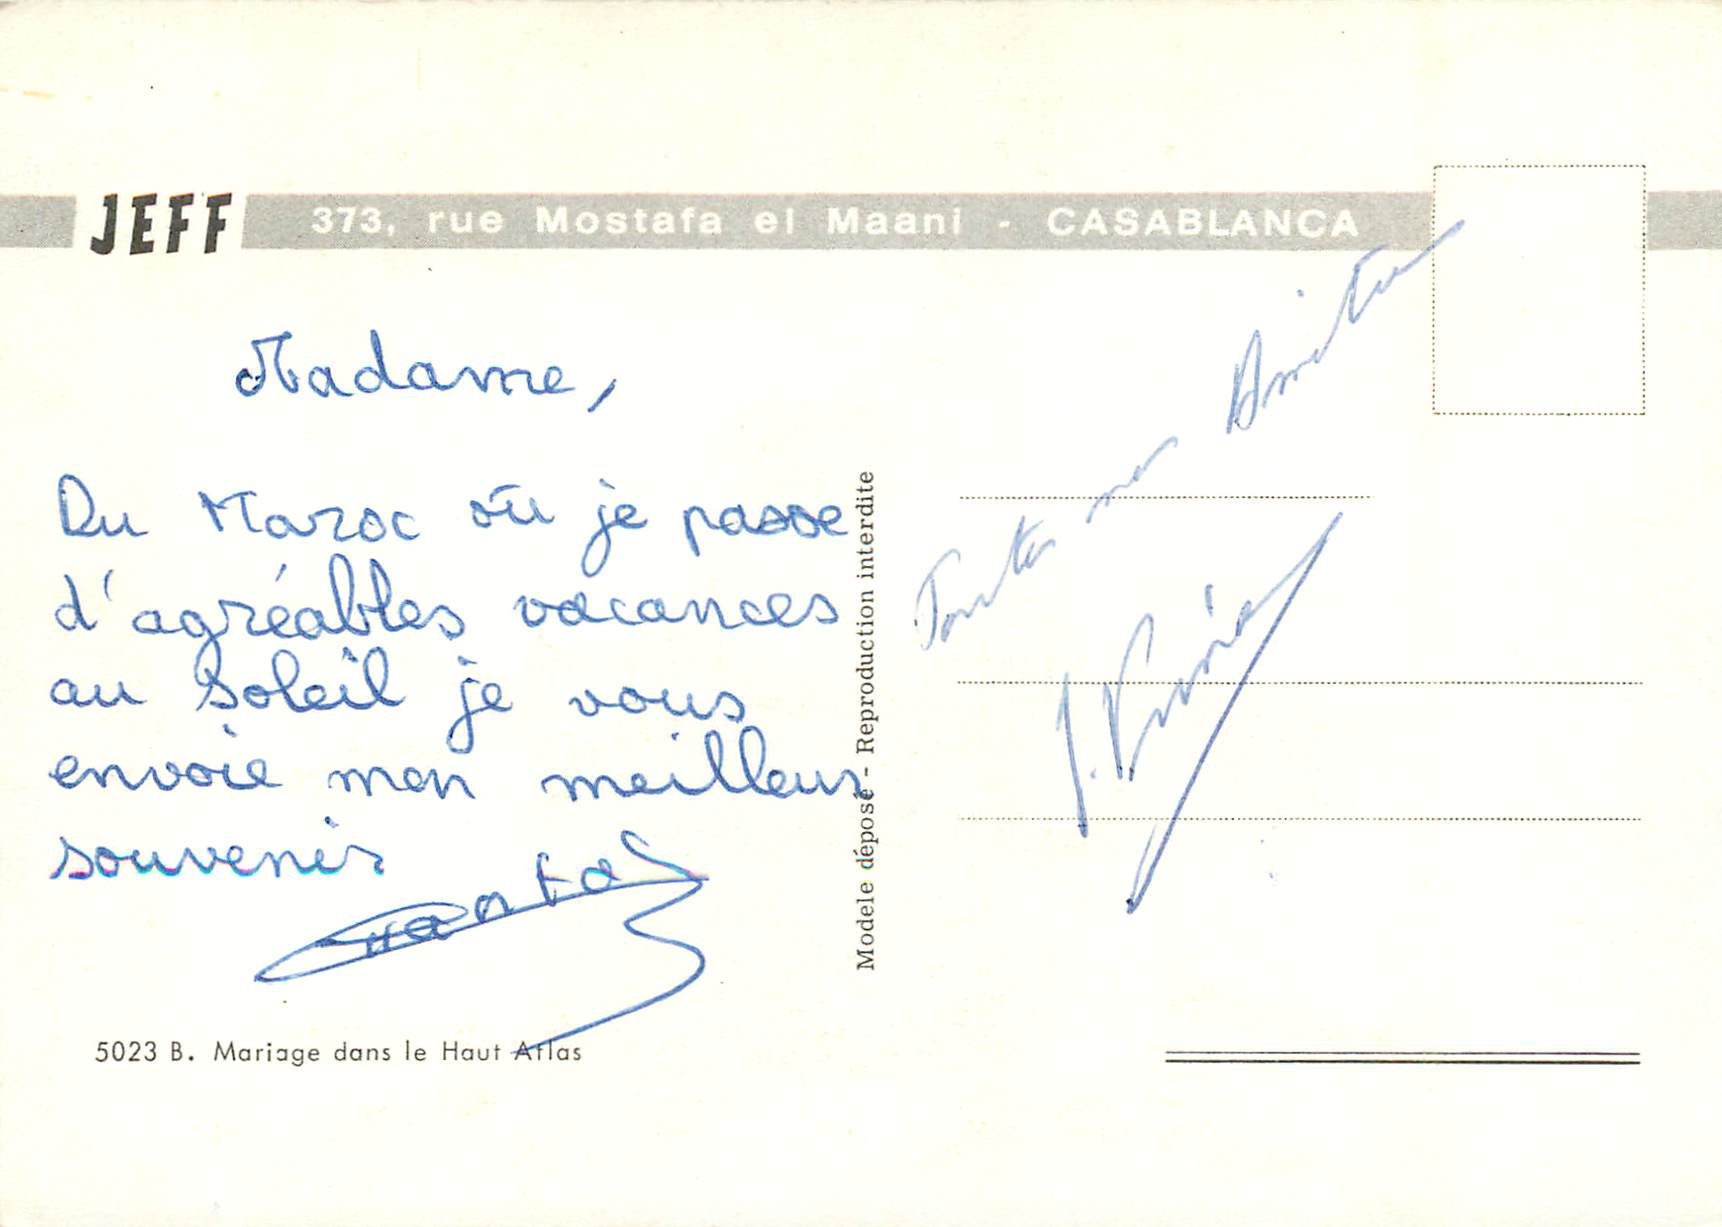 JEFF 373, rue Mostafa el Maani - CASABLANCA
Madame,
Du Maroc où je passe
d'agréables vacances
au soleil je vous
envoie mon meilleur
souvenir
5023 B. Mariage dans le Haut Atlas
Modele déposé - Reproduction interdite
Toutes mes Amitiés
J.